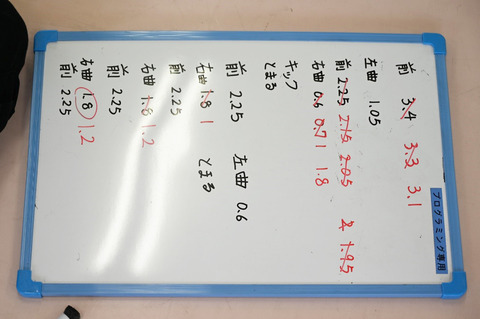 プログラミング専用
前 3.4 3.3 3.1
左曲 1.05
前 2.25 2.15 2.05 2 1.95
右曲 0.6 0.7 1 1.8
キック
とまる
前 2.25 左曲 0.6
右曲 1.8 1 とまる
前 2.25
右曲 1.8 1.2
前 2.25
右曲 1.8 1.2
前 2.25